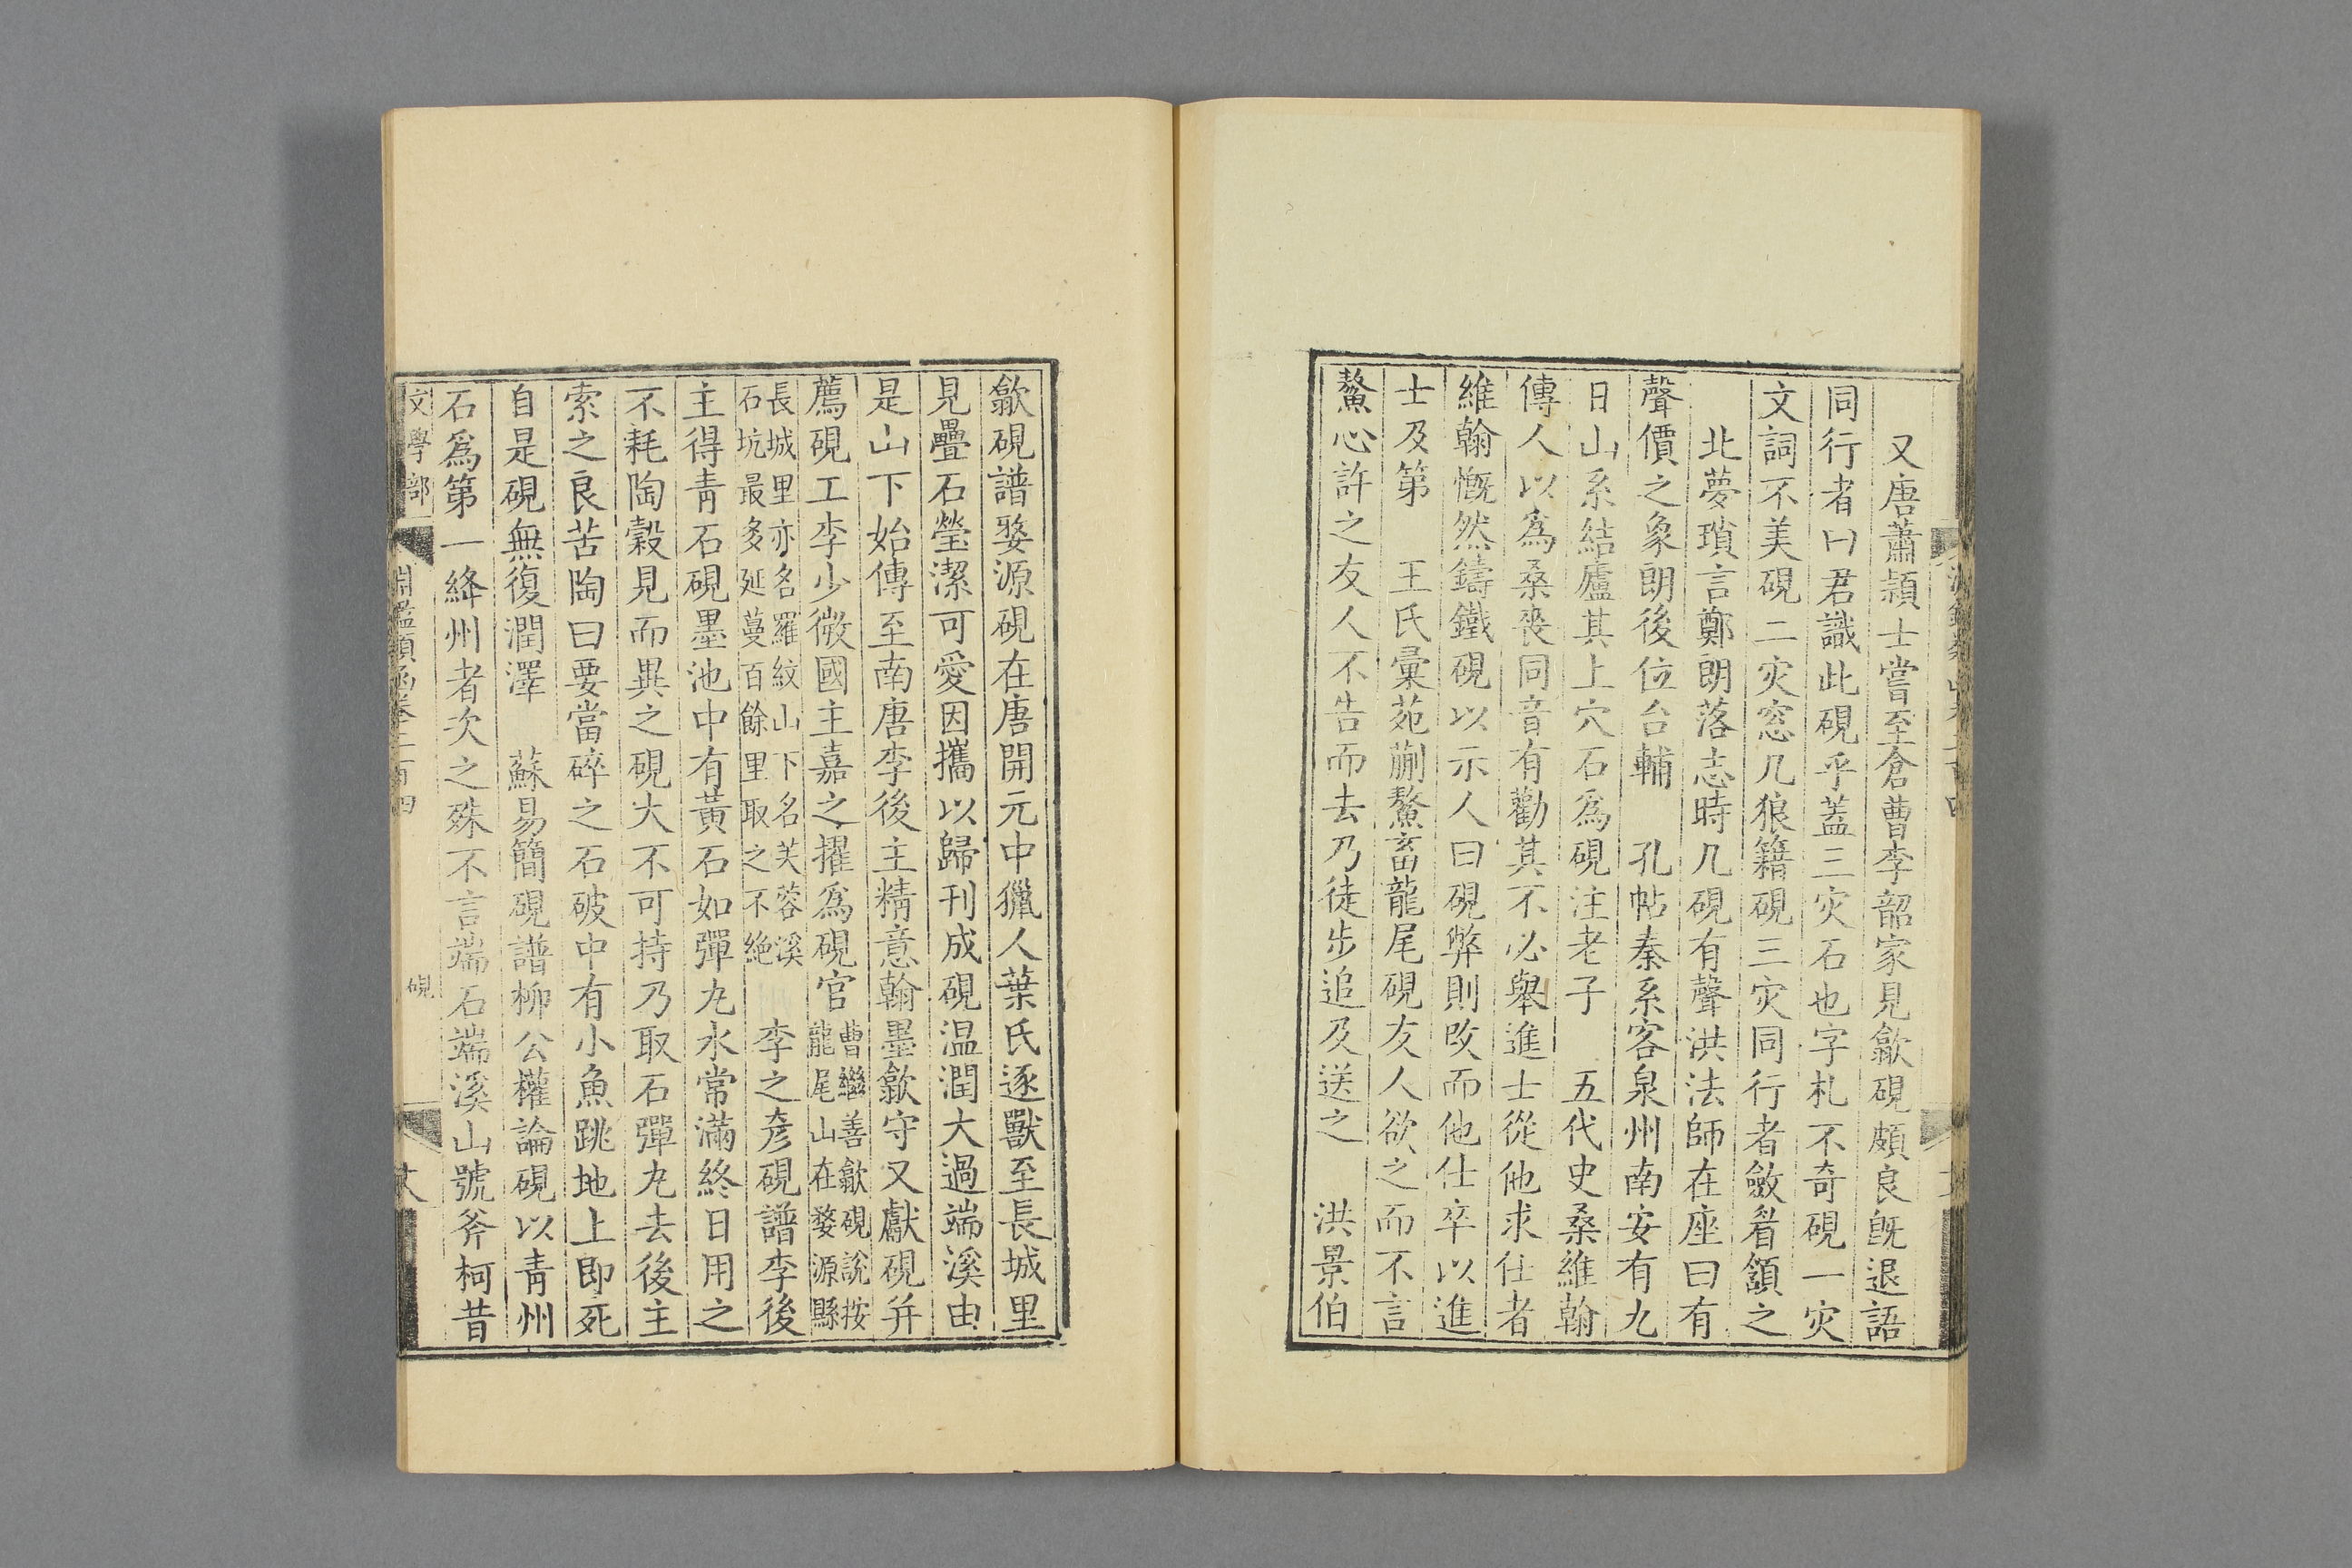 又唐蕭頴士嘗至倉曹李韶家見歙硯頗良旣退語
同行者曰君識此硯乎蓋三灾石也字札不奇硯一灾
文詞不美硯二灾窓几狼籍硯三灾同行者斂眉頷之
北夢瑣言鄭朗落志時几硯有聲洪法師在座曰有
聲價之象朗後位台輔 孔帖秦系客泉州南安有九
日山系結廬其上穴石爲硯注老子 五代史桑維翰
傳人以爲桑喪同音有勸其不必舉進士從他求仕者
維翰慨然鑄鐵硯以示人曰硯弊則改而他仕卒以進
士及第 王氏彙苑蒯鰲畜龍尾硯友人欲之而不言
鰲心許之友人不告而去乃徒步追及送之 洪景伯
歙硯譜婺源硯在唐開元中獵人葉氏逐獸至長城里
見疊石瑩潔可愛因攜以歸刊成硯温潤大過端溪由
是山下始傳至南唐李後主精意翰墨歙守又獻硯并
薦硯工李少微國主嘉之擢爲硯官曹繼善歙硯說按龍尾山在婺源縣
長城里亦名羅紋山下名芙蓉溪石坑最多延蔓百餘里取之不絶 李之彥硯譜李後
主得青石硯墨池中有黃石如彈丸水常滿終日用之
不耗陶穀見而異之硯大不可持乃取石彈丸去後主
索之良苦陶曰要當碎之石破中有小魚跳地上即死
自是硯無復潤澤 蘇易簡硯譜柳公權論硯以青州
石爲第一絳州者次之殊不言端石端溪山號斧柯昔
文學部 淵鑑類函卷二百四 硯